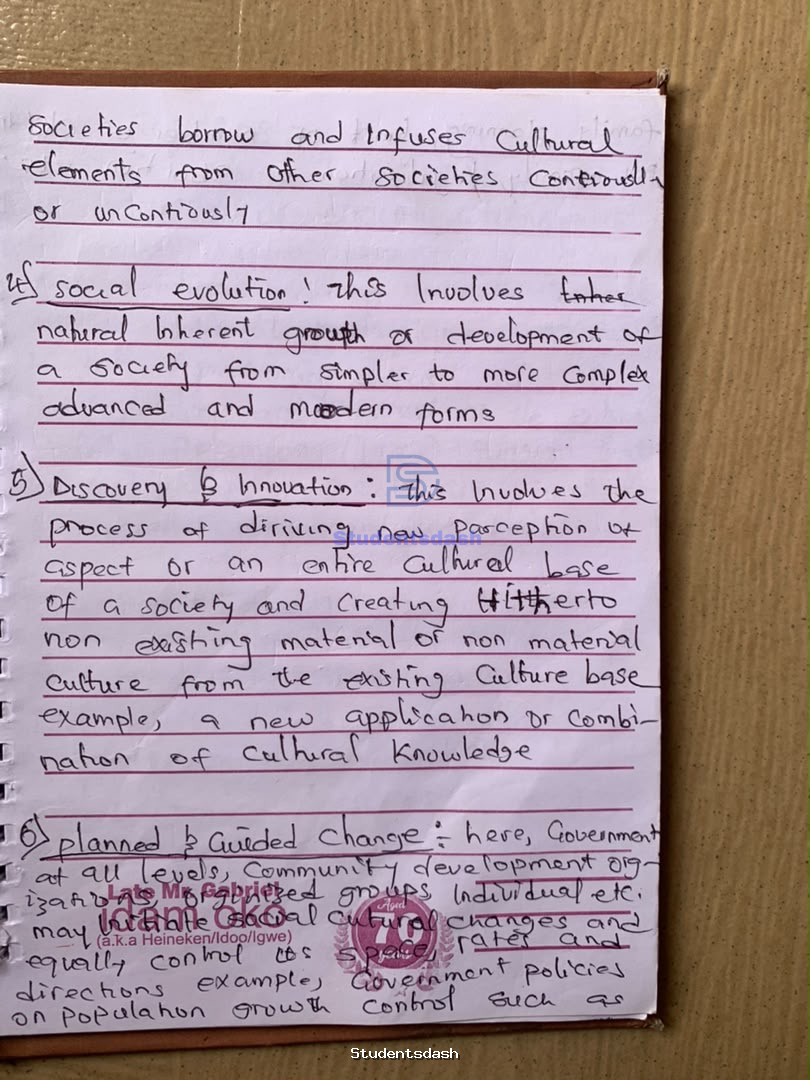 Societies borrow and Infuses Cultural
elements from other Societies Contiously
or unContiously
4) Social evolution: this Involves
natural Inherent growth or development of
a Society from Simpler to more Complex
advanced and modern forms
5) Discovery & Innovation: this Involves the
process of diriving new parception of
aspect or an entire Cultural base
of a society and Creating Hitherto
non existing material or non material
Culture from the existing Culture base
example, a new application or Combi-
nation of Cultural Knowledge
6) planned & Guided Change:- here, Government
at all levels, Community development org-
izations, organized groups, Individual etc.
may Initiate social Cultural changes and
equally control its space, rates and
directions example, Government policies
on population growth Control Such as
Studentsdash
Late Mr. Gabriel
Idam Oko
(a.k.a Heineken/Idoo/Igwe)
Aged
70
Studentsdash